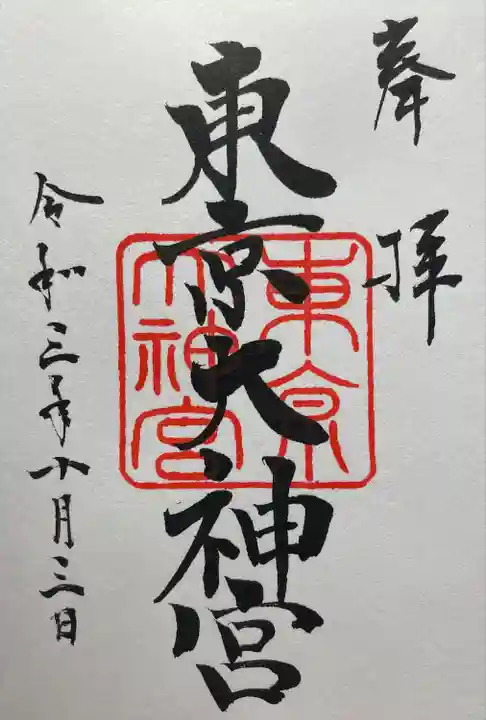 奉拝
東京大神宮
東京
大神宮
令和三年十月三日